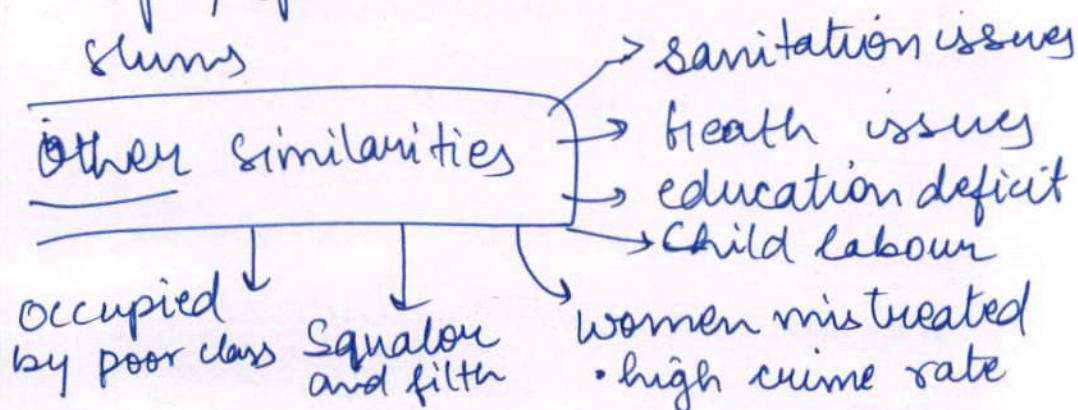 slums
Other similarities
sanitation issues
heath issues
education deficit
Child labour
occupied
by poor class
Squalor
and filth
women mistreated
• high crime rate